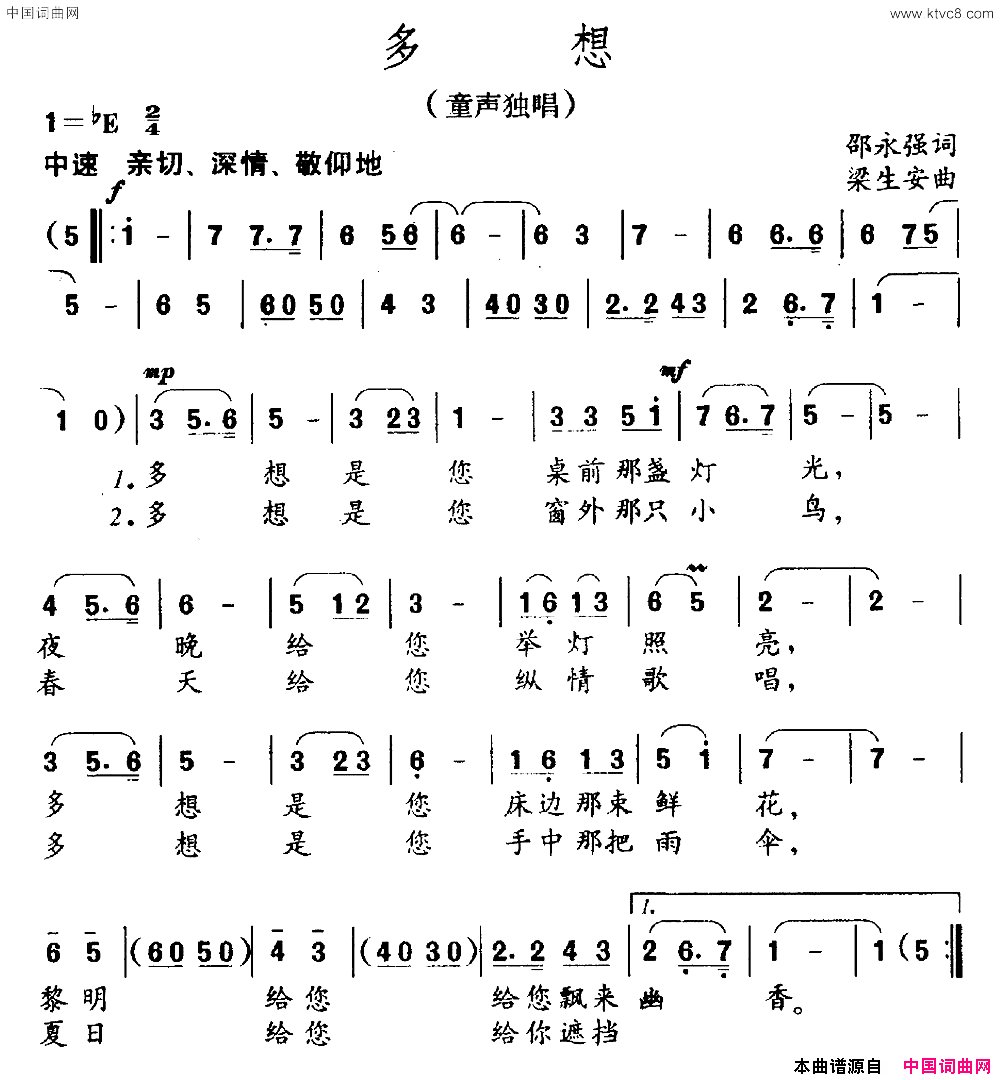 中国词曲网 www.ktvc8.com
多 想
(童声独唱)
1=♭E 2/4
邵永强词
中速 亲切、深情、敬仰地
梁生安曲
f
(5 ‖: i - | 7 7. 7 | 6 5 6 | 6 - | 6 3 | 7 - | 6 6. 6 | 6 7 5 |
5 - | 6 5 | 6 0 5 0 | 4 3 | 4 0 3 0 | 2. 2 4 3 | 2 6. 7 | 1 - |
mp mf
1 0) | 3 5. 6 | 5 - | 3 2 3 | 1 - | 3 3 5 i | 7 6. 7 | 5 - | 5 - |
1. 多 想 是 您 桌 前 那 盏 灯 光,
2. 多 想 是 您 窗 外 那 只 小 鸟,
4 5. 6 | 6 - | 5 1 2 | 3 - | 1 6 1 3 | 6 5 | 2 - | 2 - |
夜 晚 给 您 举 灯 照 亮,
春 天 给 您 纵 情 歌 唱,
3 5. 6 | 5 - | 3 2 3 | 6 - | 1 6 1 3 | 5 i | 7 - | 7 - |
多 想 是 您 床 边 那 束 鲜 花,
多 想 是 您 手 中 那 把 雨 伞,
1.
6 5 | (6 0 5 0) | 4 3 | (4 0 3 0) | 2. 2 4 3 | 2 6. 7 | 1 - | 1 (5 :‖
黎 明 给 您 给 您 飘 来 幽 香。
夏 日 给 您 给 你 遮 挡
本曲谱源自 中国词曲网